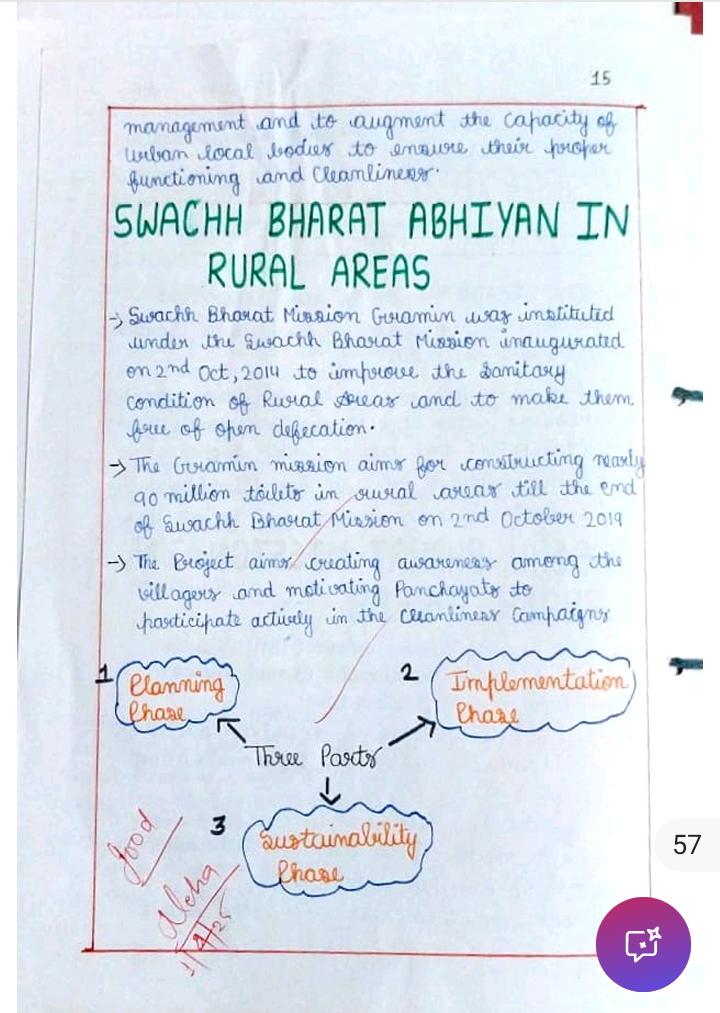 15
management and to augment the capacity of
urban local bodies to ensure their proper
functioning and Cleanliness.
SWACHH BHARAT ABHIYAN IN
RURAL AREAS
→ Swachh Bharat Mission Gramin was instituted
under the Swachh Bharat Mission inaugurated
on 2nd Oct, 2014 to improve the Sanitary
condition of Rural Areas and to make them
free of open defecation.
→ The Gramin mission aims for constructing nearly
90 million toilets in rural areas till the end
of Swachh Bharat Mission on 2nd October 2019
→ The Project aims creating awareness among the
villagers and motivating Panchayats to
participate actively in the Cleanliness Campaigns
1 Planning
Phase
2 Implementation
Phase
Three Parts
3 Sustainability
Phase
Good
57